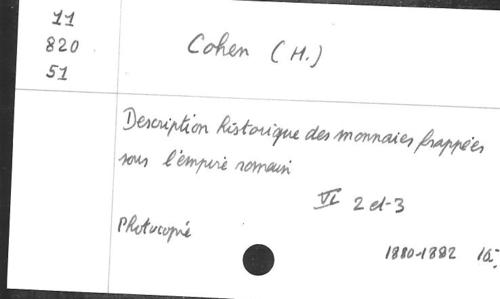 11
820
51
Cohen (H.)
Description historique des monnaies frappées
sous l'empire romain
VI 2 et 3
Photocopié
1880-1882